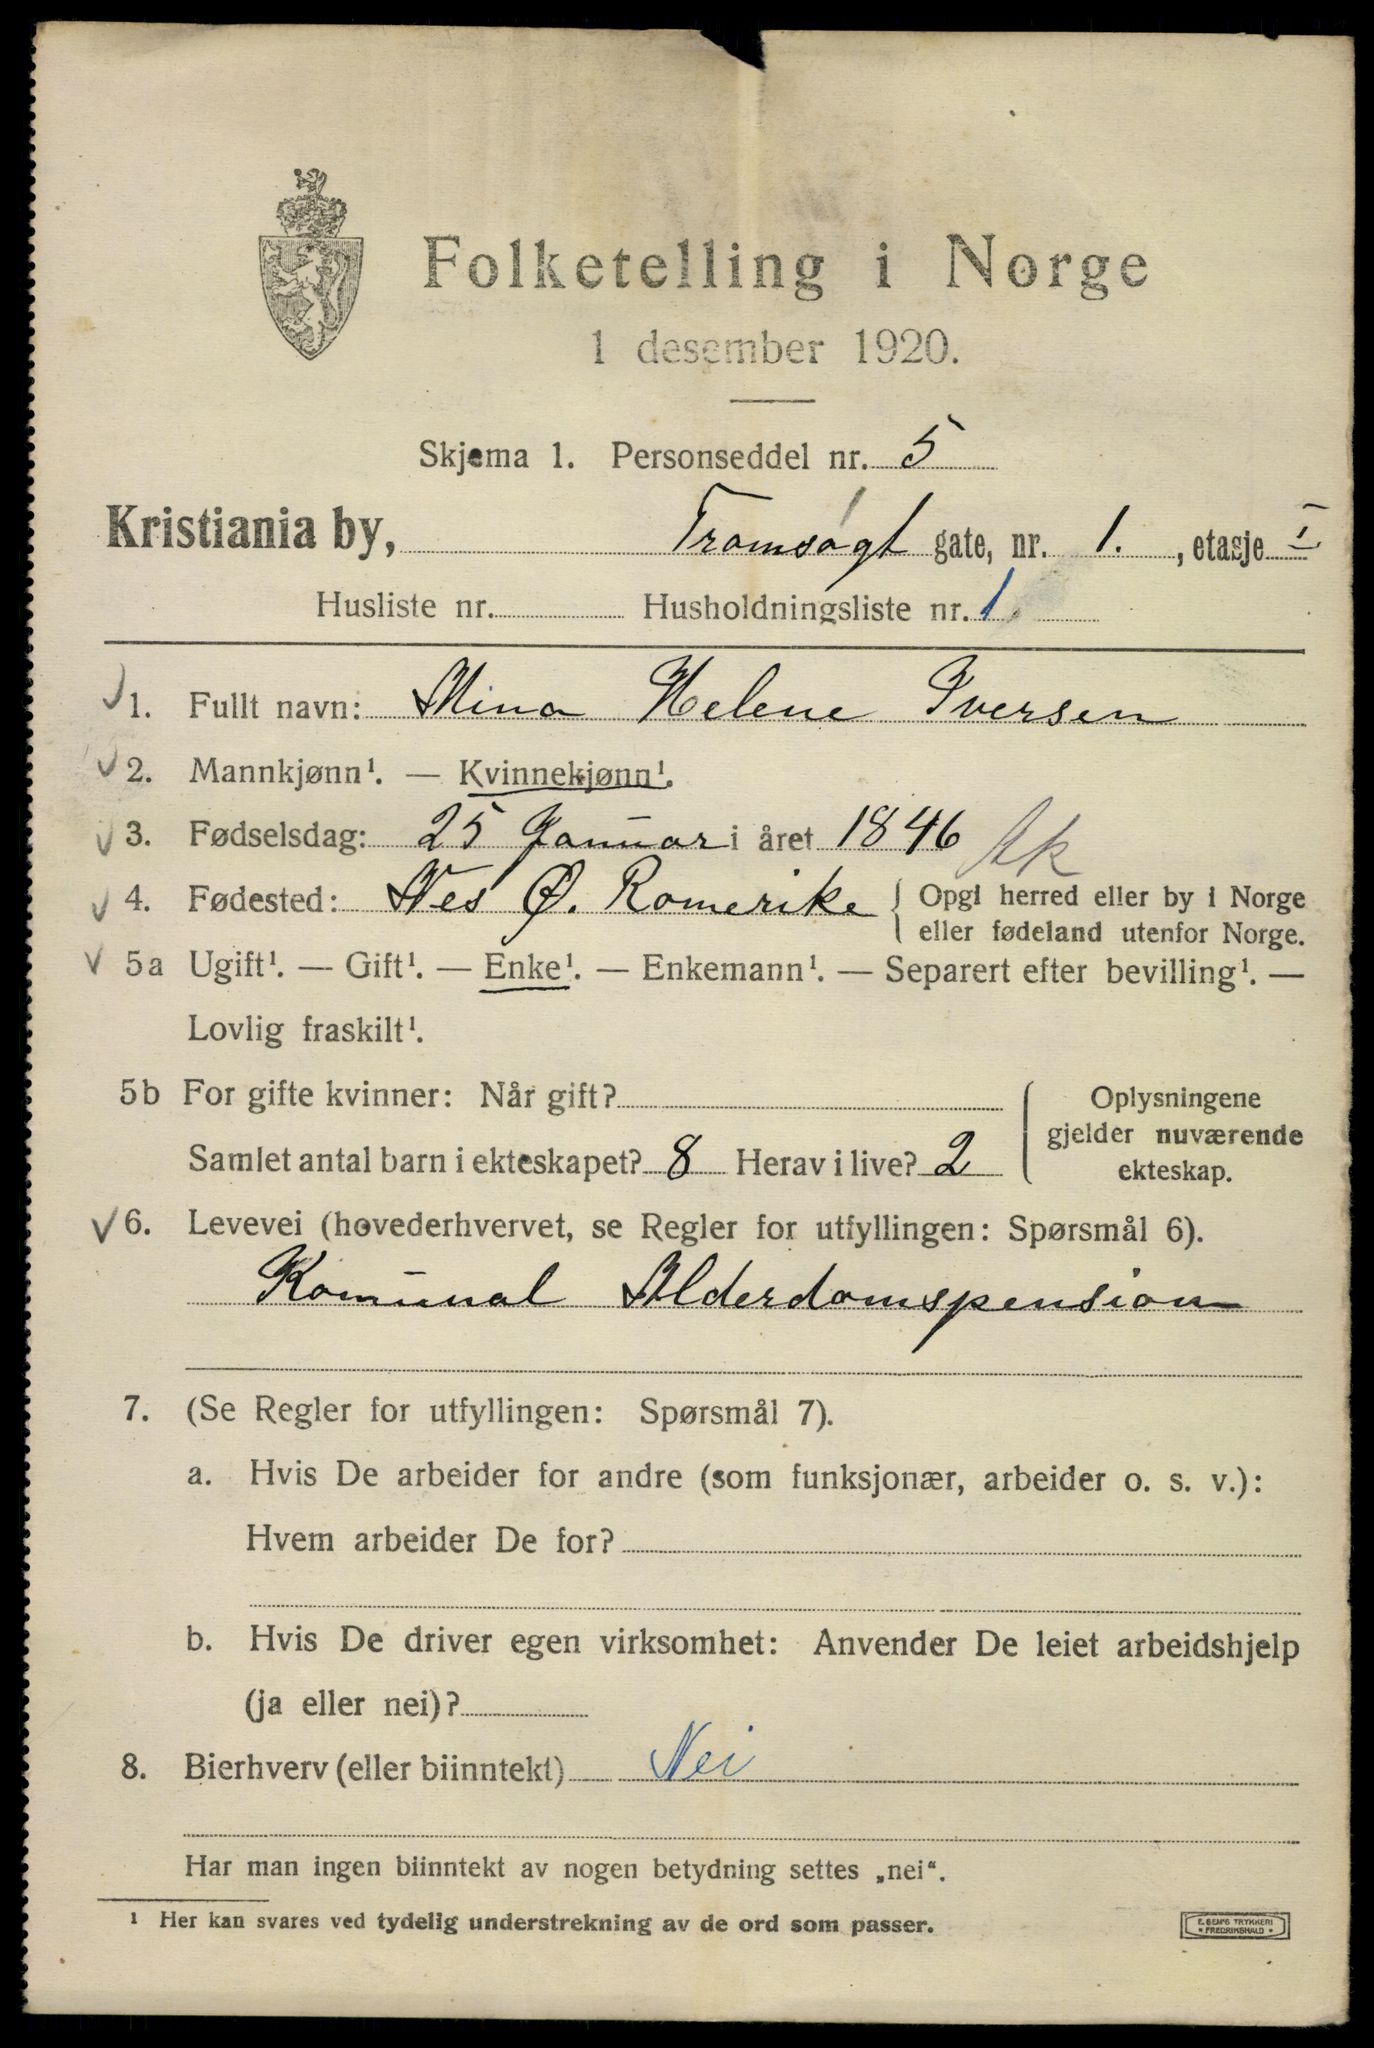 Folketelling i Norge
1 desember 1920.
Skjema 1. Personseddel nr. 5
Kristiania by, Tromsøgt gate, nr. 1. , etasje I
Husliste nr. Husholdningsliste nr. 1.
1. Fullt navn: Mina Helene Iversen
2. Mannkjønn¹. — Kvinnekjønn¹.
3. Fødselsdag: 25 Januar i året 1846 Ak
4. Fødested: Nes Ø. Romerike { Opgi herred eller by i Norge
eller fødeland utenfor Norge.
5a Ugift¹. — Gift¹. — Enke¹. — Enkemann¹. — Separert efter bevilling¹. —
Lovlig fraskilt¹.
5b For gifte kvinner: Når gift? { Oplysningene
gjelder nuværende
Samlet antal barn i ekteskapet? 8 Herav i live? 2 ekteskap.
6. Levevei (hovederhvervet, se Regler for utfyllingen: Spørsmål 6).
Komunal Alderdomspension
7. (Se Regler for utfyllingen: Spørsmål 7).
a. Hvis De arbeider for andre (som funksjonær, arbeider o. s. v.):
Hvem arbeider De for?
b. Hvis De driver egen virksomhet: Anvender De leiet arbeidshjelp
(ja eller nei)?
8. Bierhverv (eller biinntekt) Nei
Har man ingen biinntekt av nogen betydning settes „nei“.
¹ Her kan svares ved tydelig understrekning av de ord som passer.
E. SEM'S TRYKKERI
* FREDRIKSHALD *